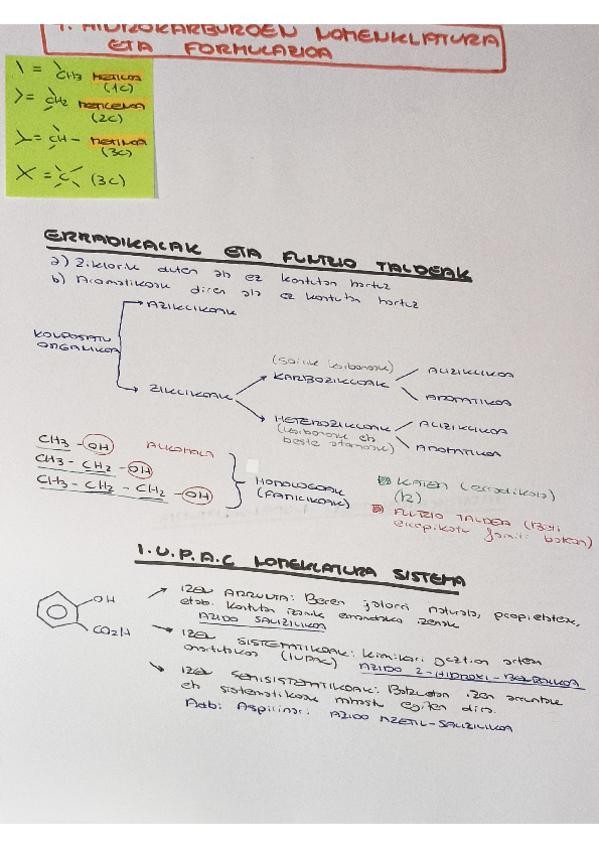 1. HIDROKARBUROEN NOMENKLATURA
ETA FORMULAZIOA
\ = CH3 METILOA
(1C)
>= CH2 METILENOA
(2C)
= CH- METINOA
(3C)
X = C (3C)
ERRADIKALAK ETA FUNTZIO TALDEAK
a) Ziklorik duten ala ez kontutan hartuz
b) Aromatikoak diren ala ez kontutan hartuz
AZIKLIKOAK
KONPOSATU
ORGANIKOA
ZIKLIKOAK
(soilik karbonoak)
KARBOZIKLOAK
ALIZIKLIKOA
AROMATIKOA
HETEROZIKLOAK
(karbonoak eta
beste atomoak)
ALIZIKLIKOA
AROMATIKOA
CH3 - OH ALKOHOLA
CH3 - CH2 - OH
CH3 - CH2 - CH2 - OH
HOMOLOGOAK
(FAMILIKOAK)
KATEA (erradikala)
(R)
FUNTZIO TALDEA (Beti
errepikatu familia batean)
I.U.P.A.C NOMEKLATURA SISTEMA
OH
CO2H
IZEN ARRUNTA: Beren jatorri naturala, propietateak,
etab. kontutan izanik emandako izenak
AZIDO SALIZILIKOA
IZEN SISTEMATIKOAK: kimikari guztion artean
onartutakoa (IUPAC) AZIDO 2-HIDROXI-BENZOIKOA
IZEN SEMISISTEMATIKOAK: Batzuetan izen arruntak
eta sistematikoak nahastu egiten dira.
Adb: Aspirina: AZIDO AZETIL-SALIZILIKOA